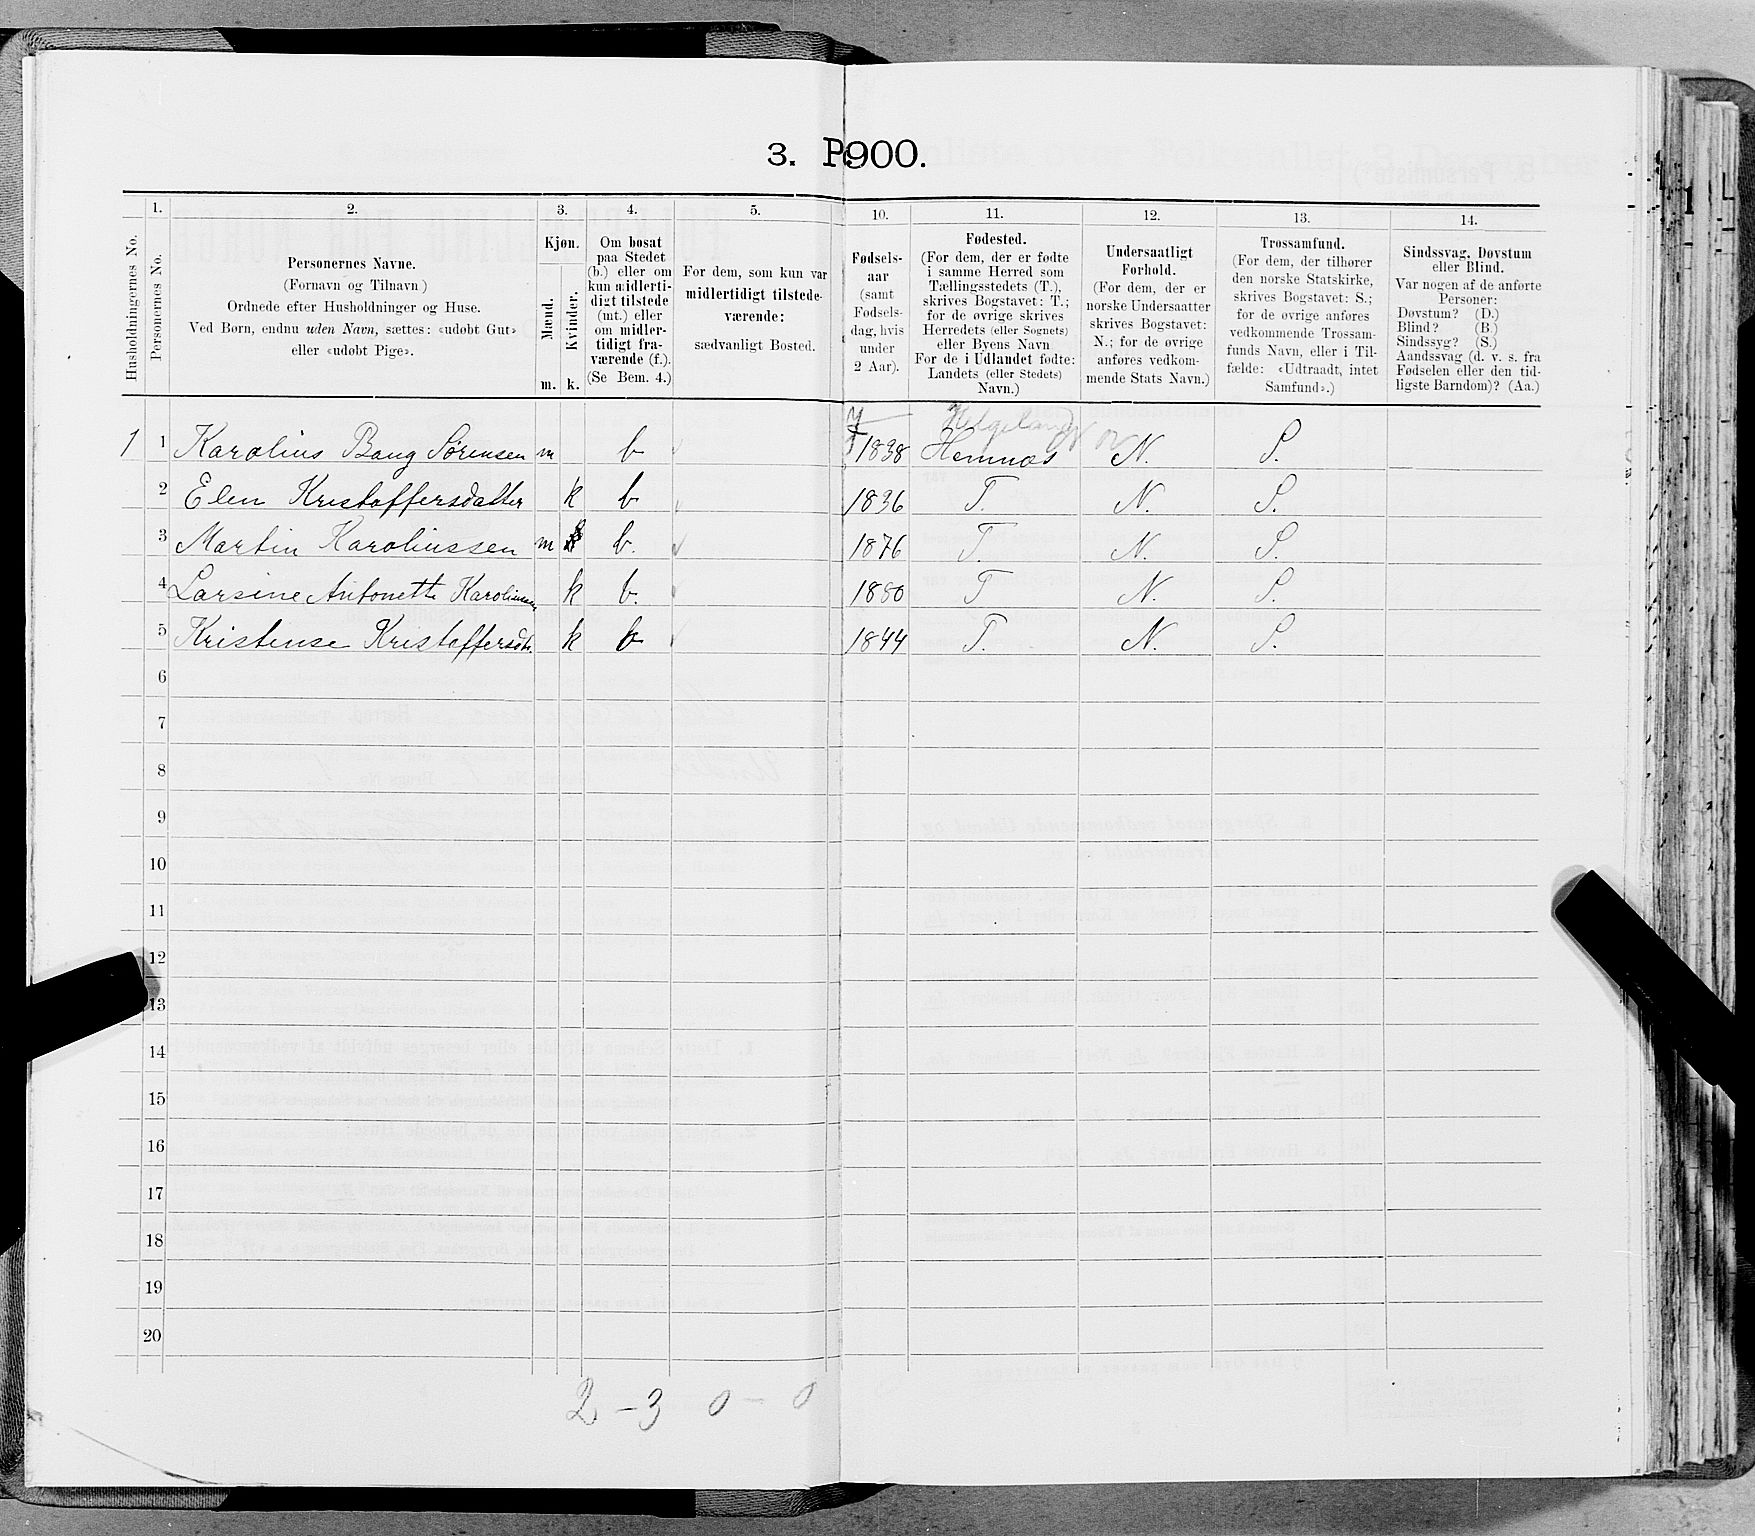 3. P900.
Husholdningernes No.
1.
Personernes No.
2.
Personernes Navne.
(Fornavn og Tilnavn)
Ordnede efter Husholdninger og Huse.
Ved Børn, endnu uden Navn, sættes: «udøbt Gut»
eller «udøbt Pige».
3.
Kjøn.
Mænd.
Kvinder.
m. k.
4.
Om bosat
paa Stedet
(b.) eller om
kun midlerti-
digt tilstede
(mt.) eller
om midler-
tidigt fra-
værende (f.).
(Se Bem. 4.)
5.
For dem, som kun var
midlertidigt tilstede-
værende:
sædvanligt Bosted.
10.
Fødsels-
aar
(samt
Fødsels-
dag, hvis
under
2 Aar).
11.
Fødested.
(For dem, der er fødte
i samme Herred som
Tællingsstedets (T.),
skrives Bogstavet: T.;
for de øvrige skrives
Herredets (eller Sognets)
eller Byens Navn
For de i Udlandet fødte:
Landets (eller Stedets)
Navn.)
12.
Undersaatligt
Forhold.
(For dem, der er
norske Undersaatter
skrives Bogstavet:
N.; for de øvrige
anføres vedkom-
mende Stats Navn.)
13.
Trossamfund.
(For dem, der tilhører
den norske Statskirke,
skrives Bogstavet: S.;
for de øvrige anføres
vedkommende Trossam-
funds Navn, eller i Til-
fælde: «Udtraadt, intet
Samfund».)
14.
Sindssvag, Døvstum
eller Blind.
Var nogen af de anførte
Personer:
Døvstum? (D.)
Blind? (B.)
Sindssyg? (S.)
Aandssvag (d. v. s. fra
Fødselen eller den tid-
ligste Barndom)? (Aa.)
Helgeland
1 1 Karolius Bang Sørensen m b 1838 Hemnæs N. S.
2 Elen Kristoffersdatter k b 1836 T. N. S.
3 Martin Karoliussen m b. 1876 T. N. S.
4 Larsine Antonette Karoliussen k b. 1880 T N. S.
5 Kristense Kristoffersdtr. k b 1844 T. N. S.
6
7
8
9
10
11
12
13
14
15
16
17
18
19
20
2 - 3 0 - 0